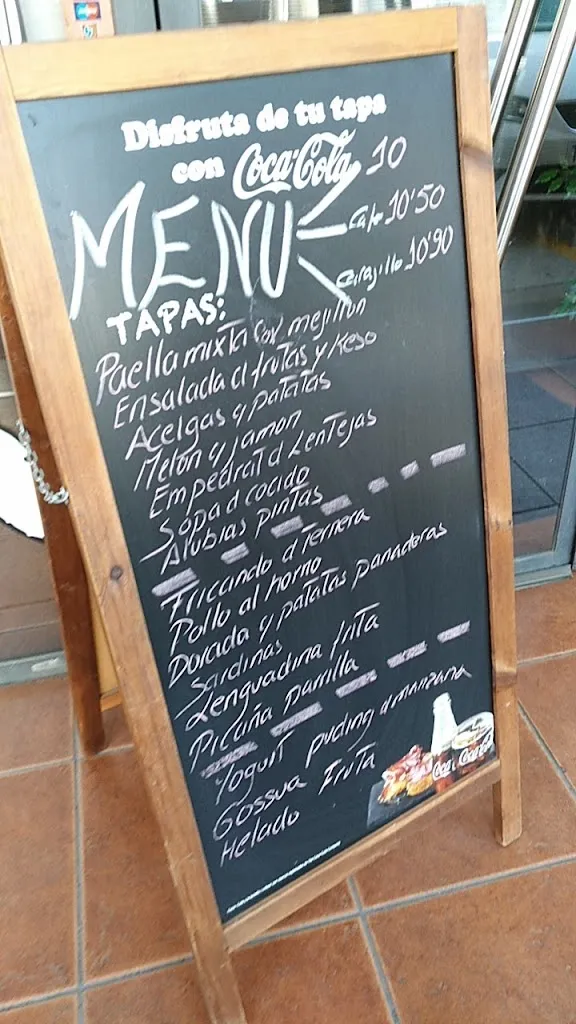 Disfruta de tu tapa
con Coca-Cola 10
MENU
Cafe 10'50
Carajillo 10'90
TAPAS:
Paella mixta con mejillon
Ensalada d frutas y keso
Acelgas y patatas
Melon y jamon
Empedrat d Lentejas
Sopa d cocido
Alubias pintas
Fricando d ternera
Pollo al horno
Dorada y patatas panaderas
Sardinas
Lenguadina frita
Picaña parrilla
Yogurt puding d manzana
Gossua Fruta
Helado
Coca-Cola